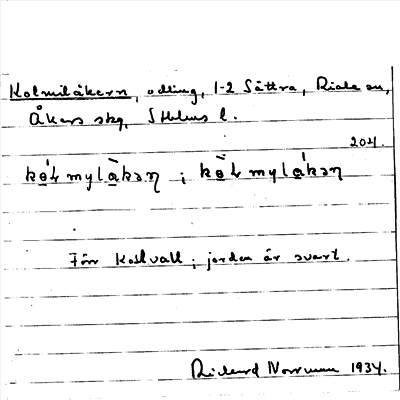 Kolmilåkern, odling, 1-2 Sättra, Riala sn,
Åkers skg, Sthlms l.
204.
kɵ́ɫmylàkən ; kɵ̀ɫmylákən
Förr kolvall; jorden är svart.
Rickard Norrman 1934.